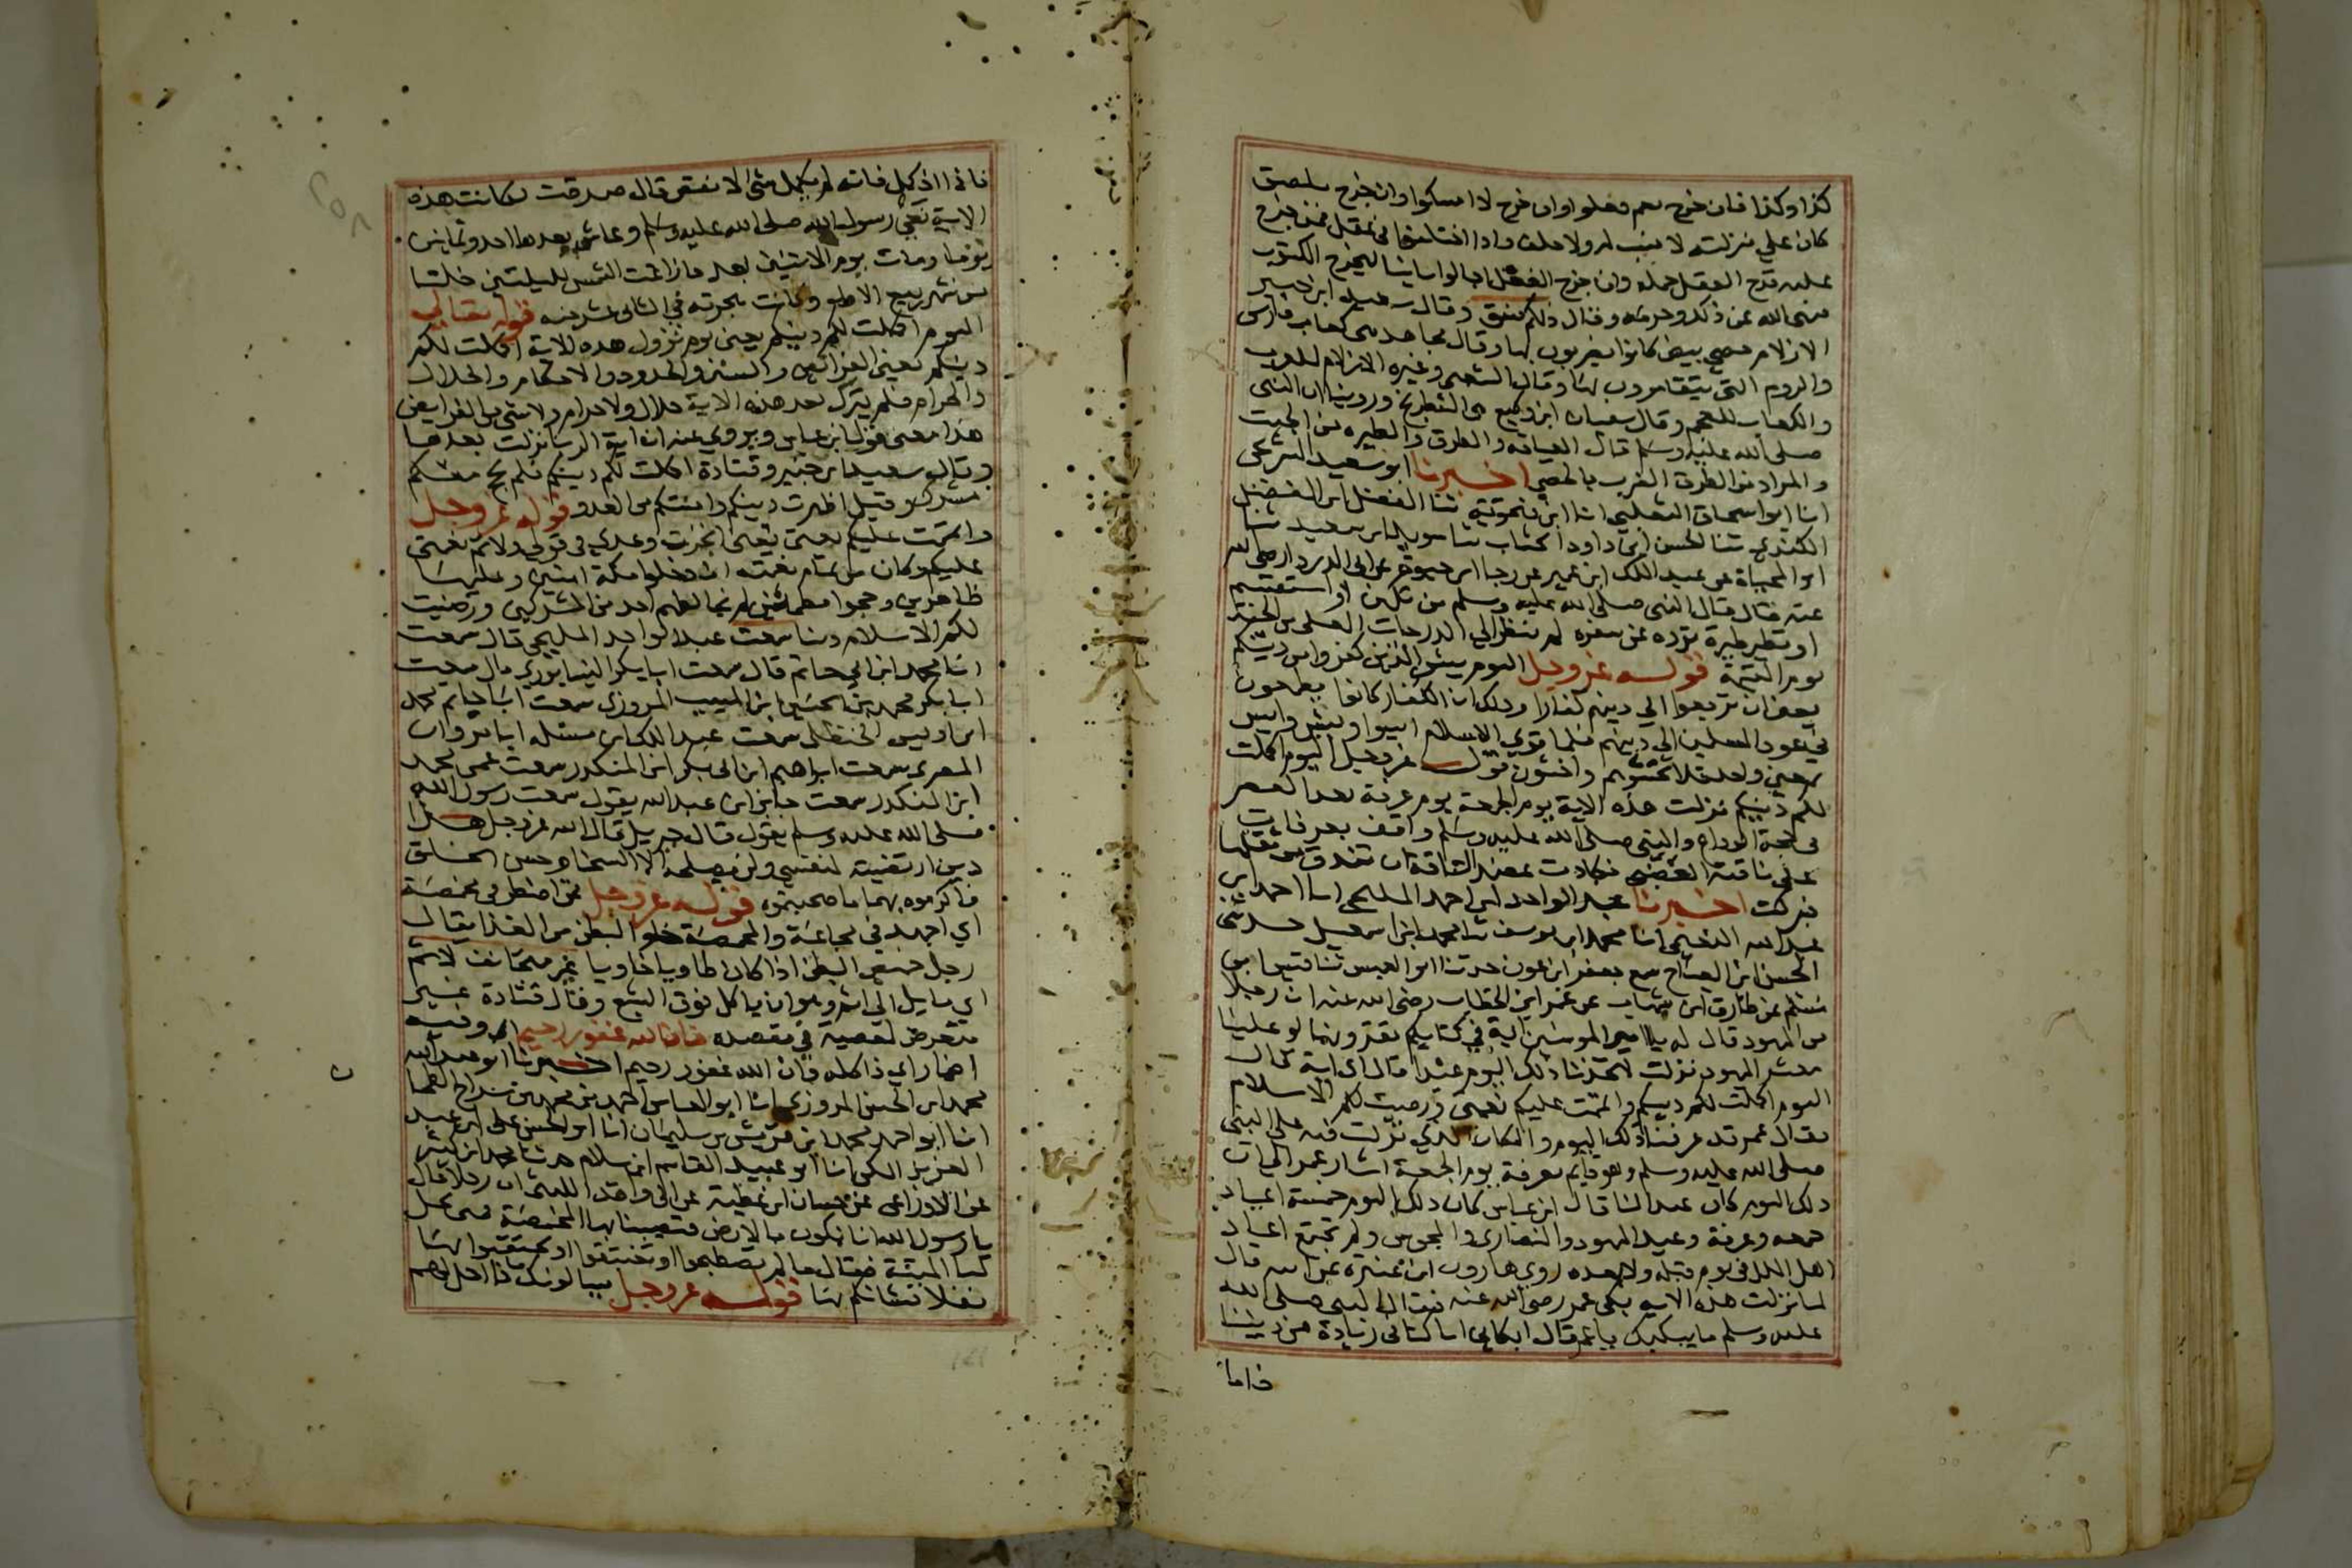 كذا وكذا فان خرج نعم فعلوا وان خرج لا امسكوا وان خرج ملصق
كان على منزلته لا نسب له ولا حلف واذا اختلفوا في عقل فمن خرج
عليه قدح العقل حمله وان خرج الغفل اجالوا ثانيا ليخرج المكتوب
فنهى الله عن ذلك وحرمه وقال ذلكم فسق وقال سعيد ابن جبير
الازلام حصى بيض كانوا يضربون بها وقال مجاهد هي كعاب فارس
والروم التي يتقامرون بها وقال الشعبي وغيره الازلام للعرب
والكعاب للعجم وقال سفيان ابن وكيع هي الشطرنج وروينا ان النبي
صلى الله عليه وسلم قال العيافة والطرق والطيره من الجبت
والمراد من الطرق الضرب بالحصى اخبرنا ابو سعيد الشريحي
انا ابو اسحاق الثعلبي انا ابن فنجويه ثنا الفضل ابن الفضل
الكندي ثنا الحسن ابن داود الخشاب ثنا سويد ابن سعيد ثنا
ابو المحياة عن عبد الملك ابن عمير عن رجا ابن حيوة عن ابي الدرداء رضي الله
عنه قال قال النبي صلى الله عليه وسلم من تكهن او استقسم
او تطير طيرة ترده عن سفره لم ينظر الى الدرجات العلى من الجنة
يوم القيمة قوله عز وجل اليوم يئس الذين كفروا من دينكم
يعني ان ترجعوا الى دينهم كفارا وذلك ان الكفار كانوا يطمعون
في عود المسلمين الى دينهم فلما قوي الاسلام ايسوا ويئس وايس
بمعنى واحد فلا تخشوهم واخشون قوله عز وجل اليوم اكملت
لكم دينكم نزلت هذه الاية يوم الجمعة يوم عرفة بعد العصر
في حجة الوداع والنبي صلى الله عليه وسلم واقف بعرفات
على ناقته العضباء فكادت عضد الناقة ان تندق من ثقلها
فبركت اخبرنا عبد الواحد ابن احمد المليحي انا احمد ابن
عبد الله النعيمي انا محمد ابن يوسف ثنا محمد ابن اسمعيل حدثني
الحسن ابن الصباح سمع جعفر ابن عون حدثنا ابو العميس ثنا قيس ابن
مسلم عن طارق ابن شهاب عن عمر ابن الخطاب رضي الله عنه ان رجلا
من اليهود قال له يا امير المومنين اية في كتابكم تقرؤنها لو علينا
معشر اليهود نزلت لاتخذنا ذلك اليوم عيدا قال اي اية قال
اليوم اكملت لكم دينكم واتممت عليكم نعمتي ورضيت لكم الاسلام
فقال عمر قد عرفنا ذلك اليوم والمكان الذي نزلت فيه على النبي
صلى الله عليه وسلم وهو قايم بعرفة يوم الجمعة اشار عمر الى ان
ذلك اليوم كان عيد النا قال ابن عباس كان ذلك اليوم خمسة اعياد
جمعه وعرفة وعيد اليهود والنصارى والمجوس ولم تجتمع اعياد
اهل الملل في يوم قبله ولا بعده روى هارون ابن عنترة عن ابيه قال
لما نزلت هذه الايه بكى عمر رضي الله عنه فقال النبي صلى الله
عليه وسلم ما يبكيك يا عمر قال ابكاني انا كنا في زيادة من ديننا
فاما
فاما اذ كمل فانه لم يكمل شي الا نقص قال صدقت فكانت هذه
الاية نعي رسول الله صلى الله عليه وسلم وعاش بعدها احد وثمانين
يوما ومات يوم الاثنين بعد ما زاغت الشمس لليلتين خلتا
من شهر ربيع الاول وكانت هجرته في الثاني عشر منه قوله تعالى
اليوم اكملت لكم دينكم يعني يوم نزول هذه الاية اكملت لكم
دينكم يعني الفرائض والسنن والحدود والاحكام والحلال
والحرام فلم ينزل بعد هذه الاية حلال ولا حرام ولا شي من الفرايض
هذا معنى قول ابن عباس ويروى عنه ان اية الربا نزلت بعدها
وقال سعيد ابن جبير وقتادة اكملت لكم دينكم فلم يحج معكم
مشرك وقيل اظهرت دينكم وامنتكم من العدو قوله عز وجل
واتممت عليكم نعمتي يعني انجزت وعدي في قولي ولاتم نعمتي
عليكم وكان من تمام نعمته ان دخلوا مكة امنين وعليها
ظاهرين وحجوا مطمئنين لم يخالطهم احد من المشركين ورضيت
لكم الاسلام دينا سمعت عبد الواحد المليحي قال سمعت
انا محمد ابن ابي حاتم قال سمعت ابا بكر النيسابوري قال سمعت
ابا بكر محمد بن الحسين ابن المسيب المروزي سمعت ابا حاتم محمد
ابن ادريس الحنظلي سمعت عبد الملك ابن مسلمة ابا مروان
المصري سمعت ابراهيم ابن ابي بكر ابن المنكدر سمعت عمي محمد
ابن المنكدر سمعت جابر ابن عبد الله يقول سمعت رسول الله
صلى الله عليه وسلم يقول قال جبريل قال الله عز وجل هذا
دين ارتضيته لنفسي ولن يصلحه الا السخا وحسن الخلق
فاكرموه بهما ما صحبتموه قوله عز وجل فمن اضطر في مخمصة
اي اجهد في مجاعة والمخمصة خلو البطن من الغذا يقال
رجل خميص البطن اذا كان طاويا خاويا غير متجانف لاثم
اي مايل الى اثم وهو ان ياكل فوق الشبع وقال قتادة غير
متعرض لمعصية في مقصده فان الله غفور رحيم اي وفيه
اضمار اي فاكله فان الله غفور رحيم اخبرنا ابو عبد الله
محمد ابن الحسن المروزي انا ابو العباس احمد بن محمد بن سراج الطحان
انا ابو احمد محمد ابن قريش بن سليمان انا ابو الحسن علي ابن عبد
العزيز المكي انا ابو عبيد القاسم ابن سلام حدثنا محمد ابن كثير
عن الاوزاعي عن حسان ابن عطية عن ابي واقد الليثي ان رجلا قال
يا رسول الله انا نكون بالارض فتصيبنا بها المخمصة فمتى تحل
لنا الميتة فقال ما لم تصطبحوا او تغتبقوا او تحتفئوا بها
بقلا فشانكم بها قوله عز وجل يسالونك ماذا احل لهم